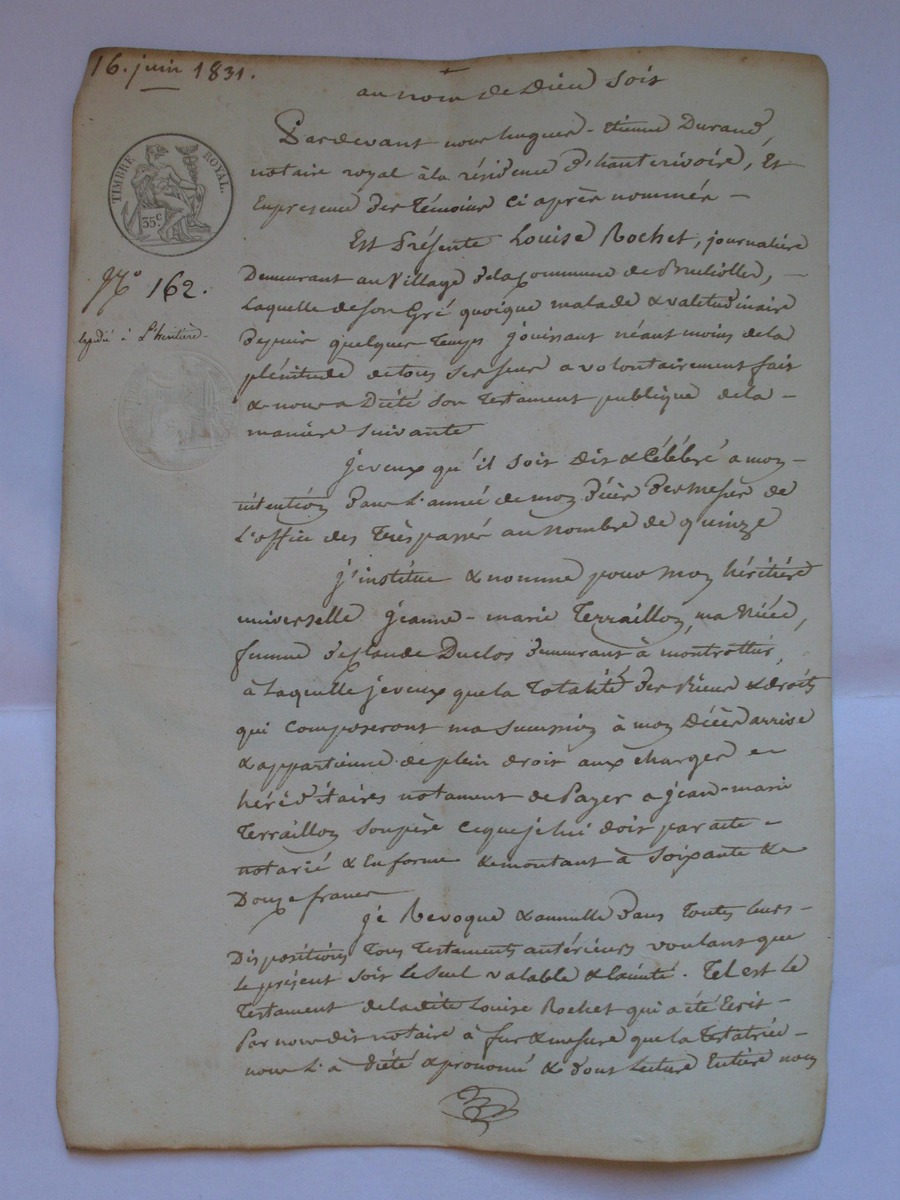 16. juin 1831.
au nom de Dieu soit
Pardevant nous hugues-Etienne Durand,
notaire royal à la résidence d'hauterivoire, Et
En presence des Témoins ci après nommés –
TIMBRE ROYAL.
35c
Est Présente Louise Rochet, journalière
N° 162.
Demeurant au Village de la Commune de Brulliolles, –
Laquelle de son Gré quoique malade & valétudinaire
Expédié à L'héritière.
Depuis quelques Temps jouissant néant moins de la
plénitude de tous ses sens a volontairement fait
& nous a Dicté son Testament publique de la –
manière suivante
je veux qu'il soit dit & Célébré a mon –
intention dans L'année de mon Décès des messes de
L'office des Trèspassés au nombre de quinze
j'institue & nomme pour mon héritière
universelle jeanne-marie Terraillon, ma Niéce,
femme de Claude Duclos demeurant à montrottier,
à Laquelle je veux que la Totalité des Biens & droits
qui Composeront ma succession à mon Décès arrive
& appartienne de plein droit aux charges
héréditaires notament de Payer a jean-marie
Terraillon son père ce que je lui dois par acte –
notarié & En forme & montant à soixante &
Douze francs
je Revoque & annulle dans toutes leurs –
Dispositions Tous Testaments antérieurs voulant que
le présent soit le seul valable & . Tel est le
Testament de ladite Louise Rochet qui a été Ecrit –
Par nous dit notaire à fur & mesure que la Testatrice –
nous L'à dicté & prononcé & dont Lecture Entière nous